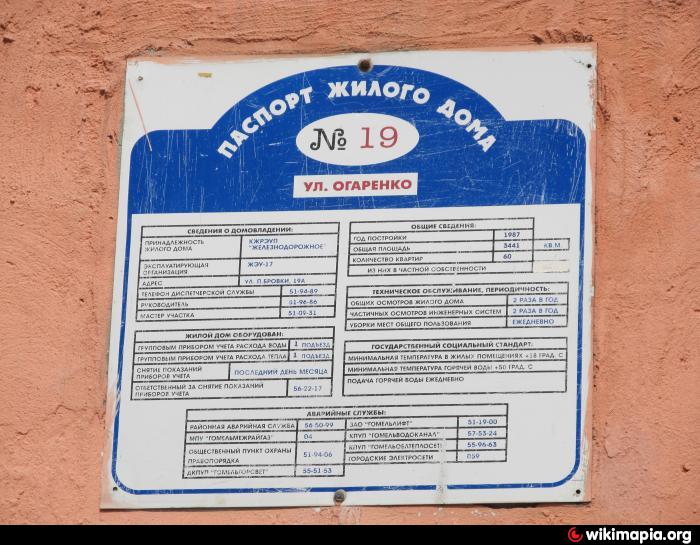 ПАСПОРТ ЖИЛОГО ДОМА
№ 19
УЛ. ОГАРЕНКО
СВЕДЕНИЯ О ДОМОВЛАДЕНИИ:
ПРИНАДЛЕЖНОСТЬ ЖИЛОГО ДОМА КЖРЭУП "ЖЕЛЕЗНОДОРОЖНОЕ"
ЭКСПЛУАТИРУЮЩАЯ ОРГАНИЗАЦИЯ ЖЭУ-17
АДРЕС УЛ. П.БРОВКИ, 19А
ТЕЛЕФОН ДИСПЕТЧЕРСКОЙ СЛУЖБЫ 51-94-89
РУКОВОДИТЕЛЬ 51-96-86
МАСТЕР УЧАСТКА 51-09-31
ЖИЛОЙ ДОМ ОБОРУДОВАН:
ГРУППОВЫМ ПРИБОРОМ УЧЕТА РАСХОДА ВОДЫ 1 ПОДЪЕЗД
ГРУППОВЫМ ПРИБОРОМ УЧЕТА РАСХОДА ТЕПЛА 1 ПОДЪЕЗД
СНЯТИЕ ПОКАЗАНИЙ ПРИБОРОВ УЧЕТА ПОСЛЕДНИЙ ДЕНЬ МЕСЯЦА
ОТВЕТСТВЕННЫЙ ЗА СНЯТИЕ ПОКАЗАНИЙ ПРИБОРОВ УЧЕТА 56-22-17
ОБЩИЕ СВЕДЕНИЯ:
ГОД ПОСТРОЙКИ 1987
ОБЩАЯ ПЛОЩАДЬ 3441 КВ.М.
КОЛИЧЕСТВО КВАРТИР 60
ИЗ НИХ В ЧАСТНОЙ СОБСТВЕННОСТИ
ТЕХНИЧЕСКОЕ ОБСЛУЖИВАНИЕ, ПЕРИОДИЧНОСТЬ:
ОБЩИХ ОСМОТРОВ ЖИЛОГО ДОМА 2 РАЗА В ГОД
ЧАСТИЧНЫХ ОСМОТРОВ ИНЖЕНЕРНЫХ СИСТЕМ 2 РАЗА В ГОД
УБОРКИ МЕСТ ОБЩЕГО ПОЛЬЗОВАНИЯ ЕЖЕДНЕВНО
ГОСУДАРСТВЕННЫЙ СОЦИАЛЬНЫЙ СТАНДАРТ:
МИНИМАЛЬНАЯ ТЕМПЕРАТУРА В ЖИЛЫХ ПОМЕЩЕНИЯХ +18 ГРАД. С
МИНИМАЛЬНАЯ ТЕМПЕРАТУРА ГОРЯЧЕЙ ВОДЫ +50 ГРАД. С
ПОДАЧА ГОРЯЧЕЙ ВОДЫ ЕЖЕДНЕВНО
АВАРИЙНЫЕ СЛУЖБЫ:
РАЙОННАЯ АВАРИЙНАЯ СЛУЖБА 56-50-99
МПУ "ГОМЕЛЬМЕЖРАЙГАЗ" 04
ОБЩЕСТВЕННЫЙ ПУНКТ ОХРАНЫ ПРАВОПОРЯДКА 51-94-06
ДКПУП "ГОМЕЛЬГОРСВЕТ" 55-51-53
ЗАО "ГОМЕЛЬЛИФТ" 51-19-00
КПУП "ГОМЕЛЬВОДОКАНАЛ" 57-53-24
КПУП "ГОМЕЛЬОБЛТЕПЛОСЕТЬ" 55-96-63
ГОРОДСКИЕ ЭЛЕКТРОСЕТИ 059
wikimapia.org